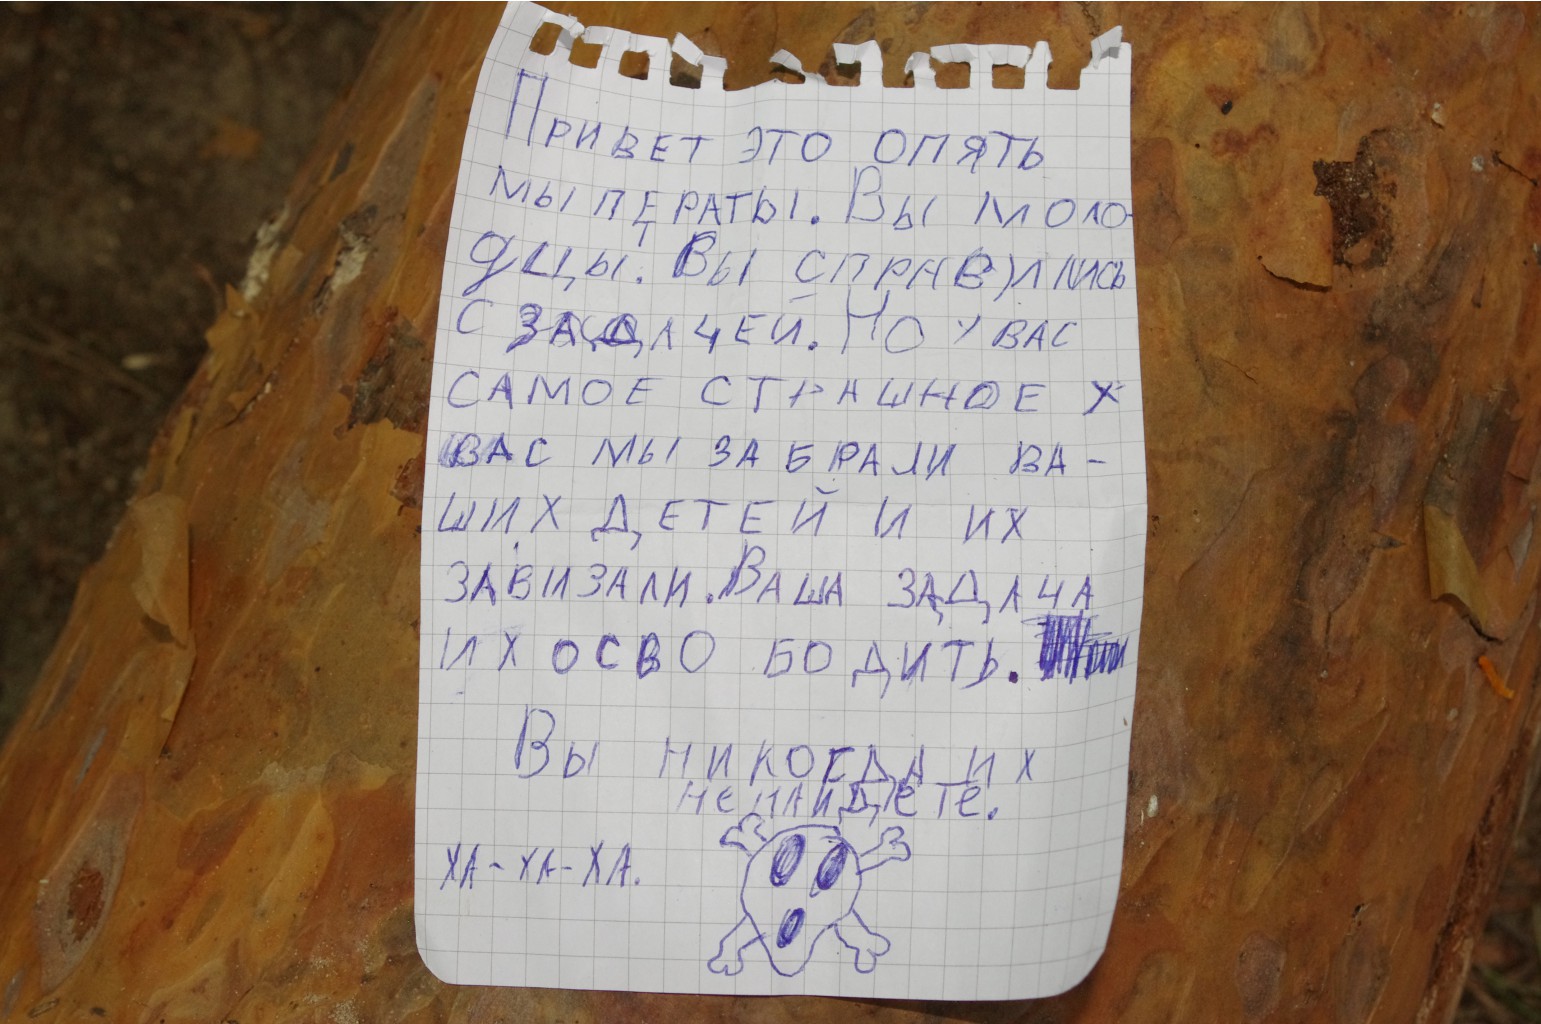 Привет это опять
мыператы. Вы моло-
дцы. Вы справились
с задачей. Но у вас
самое страшное у
вас мы забрали ва-
ших детей и их
завизали. Ваша задача
их освободить.
Вы никогда их
не найдете.
ха-ха-ха.